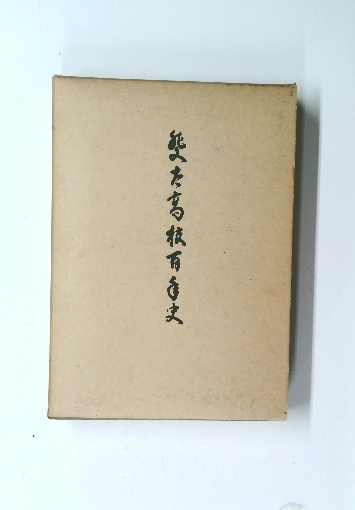 斐太高校百年史